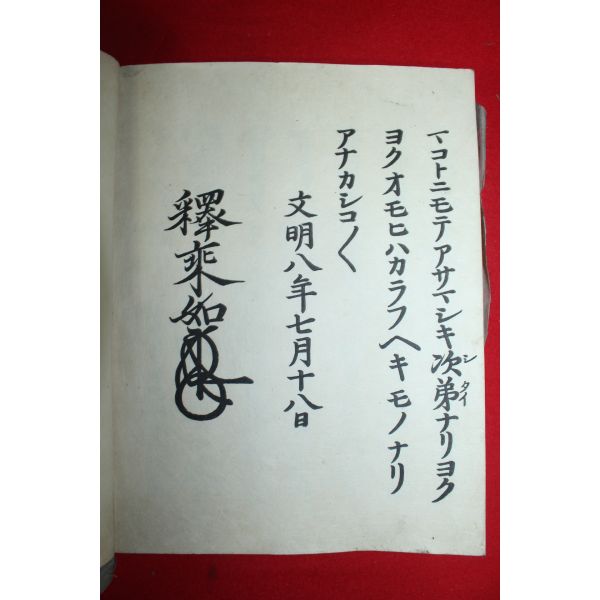 マコトニモテアサマシキ次弟ナリヨク
シタイ
ヨクオモヒハカラフヘキモノナリ
アナカシコ〱
文明八年七月十八日
釋乗如